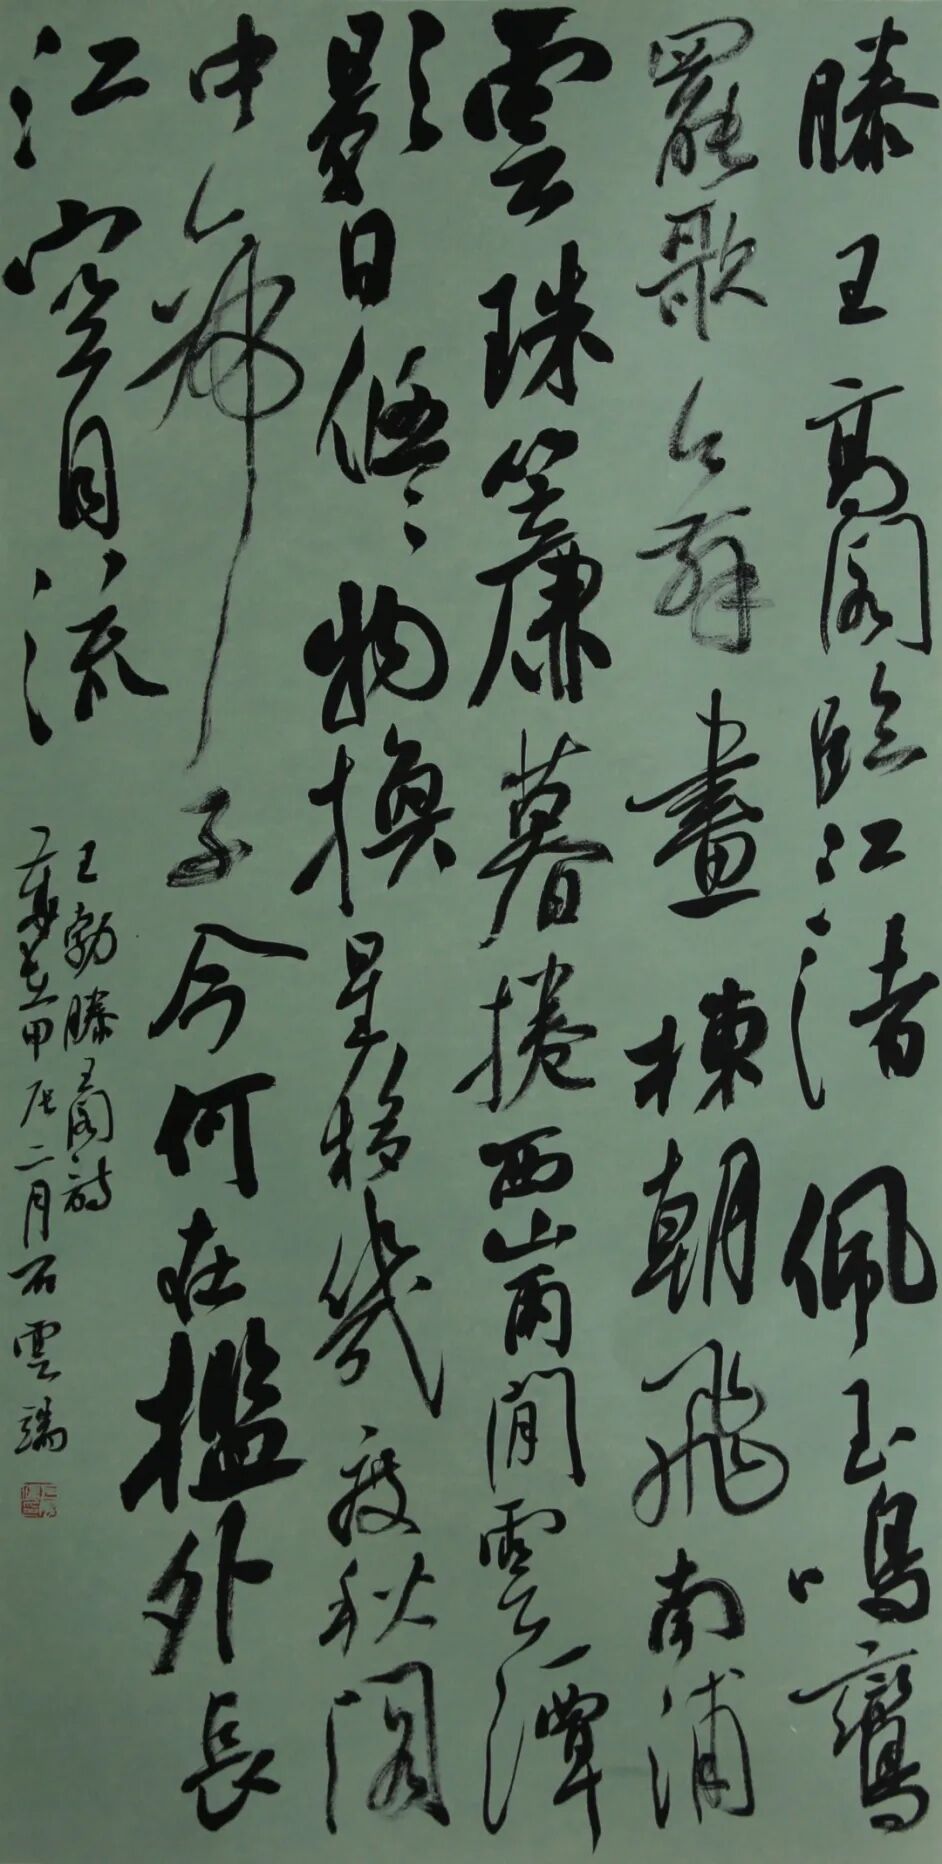 滕王高閣臨江渚佩玉鳴鸞
罷歌舞畫棟朝飛南浦
雲珠簾暮捲西山雨閒雲潭
影日悠々物換星移幾度秋閣
中帝子今何在檻外長
江空自流
王勃滕王閣詩
歲在甲辰二月石雲端